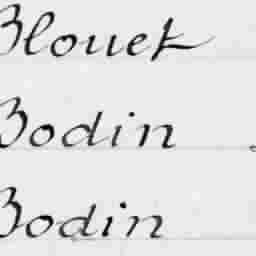 Blouet
Bodin
Bodin